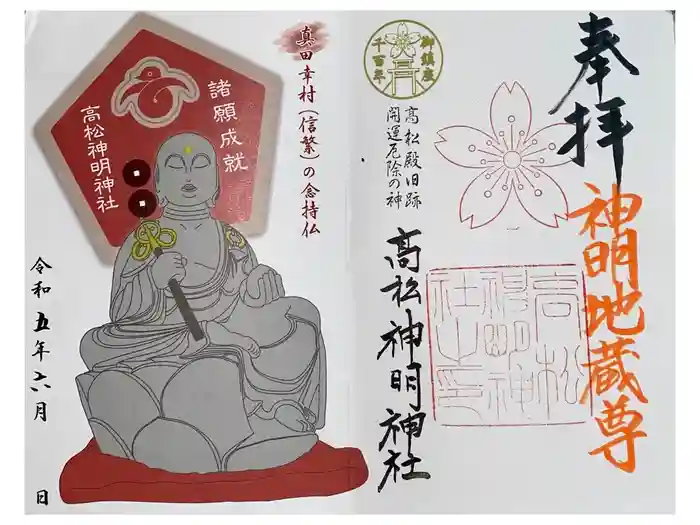 奉拝
神明地蔵尊
御鎮座
千百年
高
高松殿旧跡
開運厄除の神
高松神明神社
高松
神明神
社之印
真田幸村（信繁）の念持仏
諸願成就
高松神明神社
令和五年六月 日